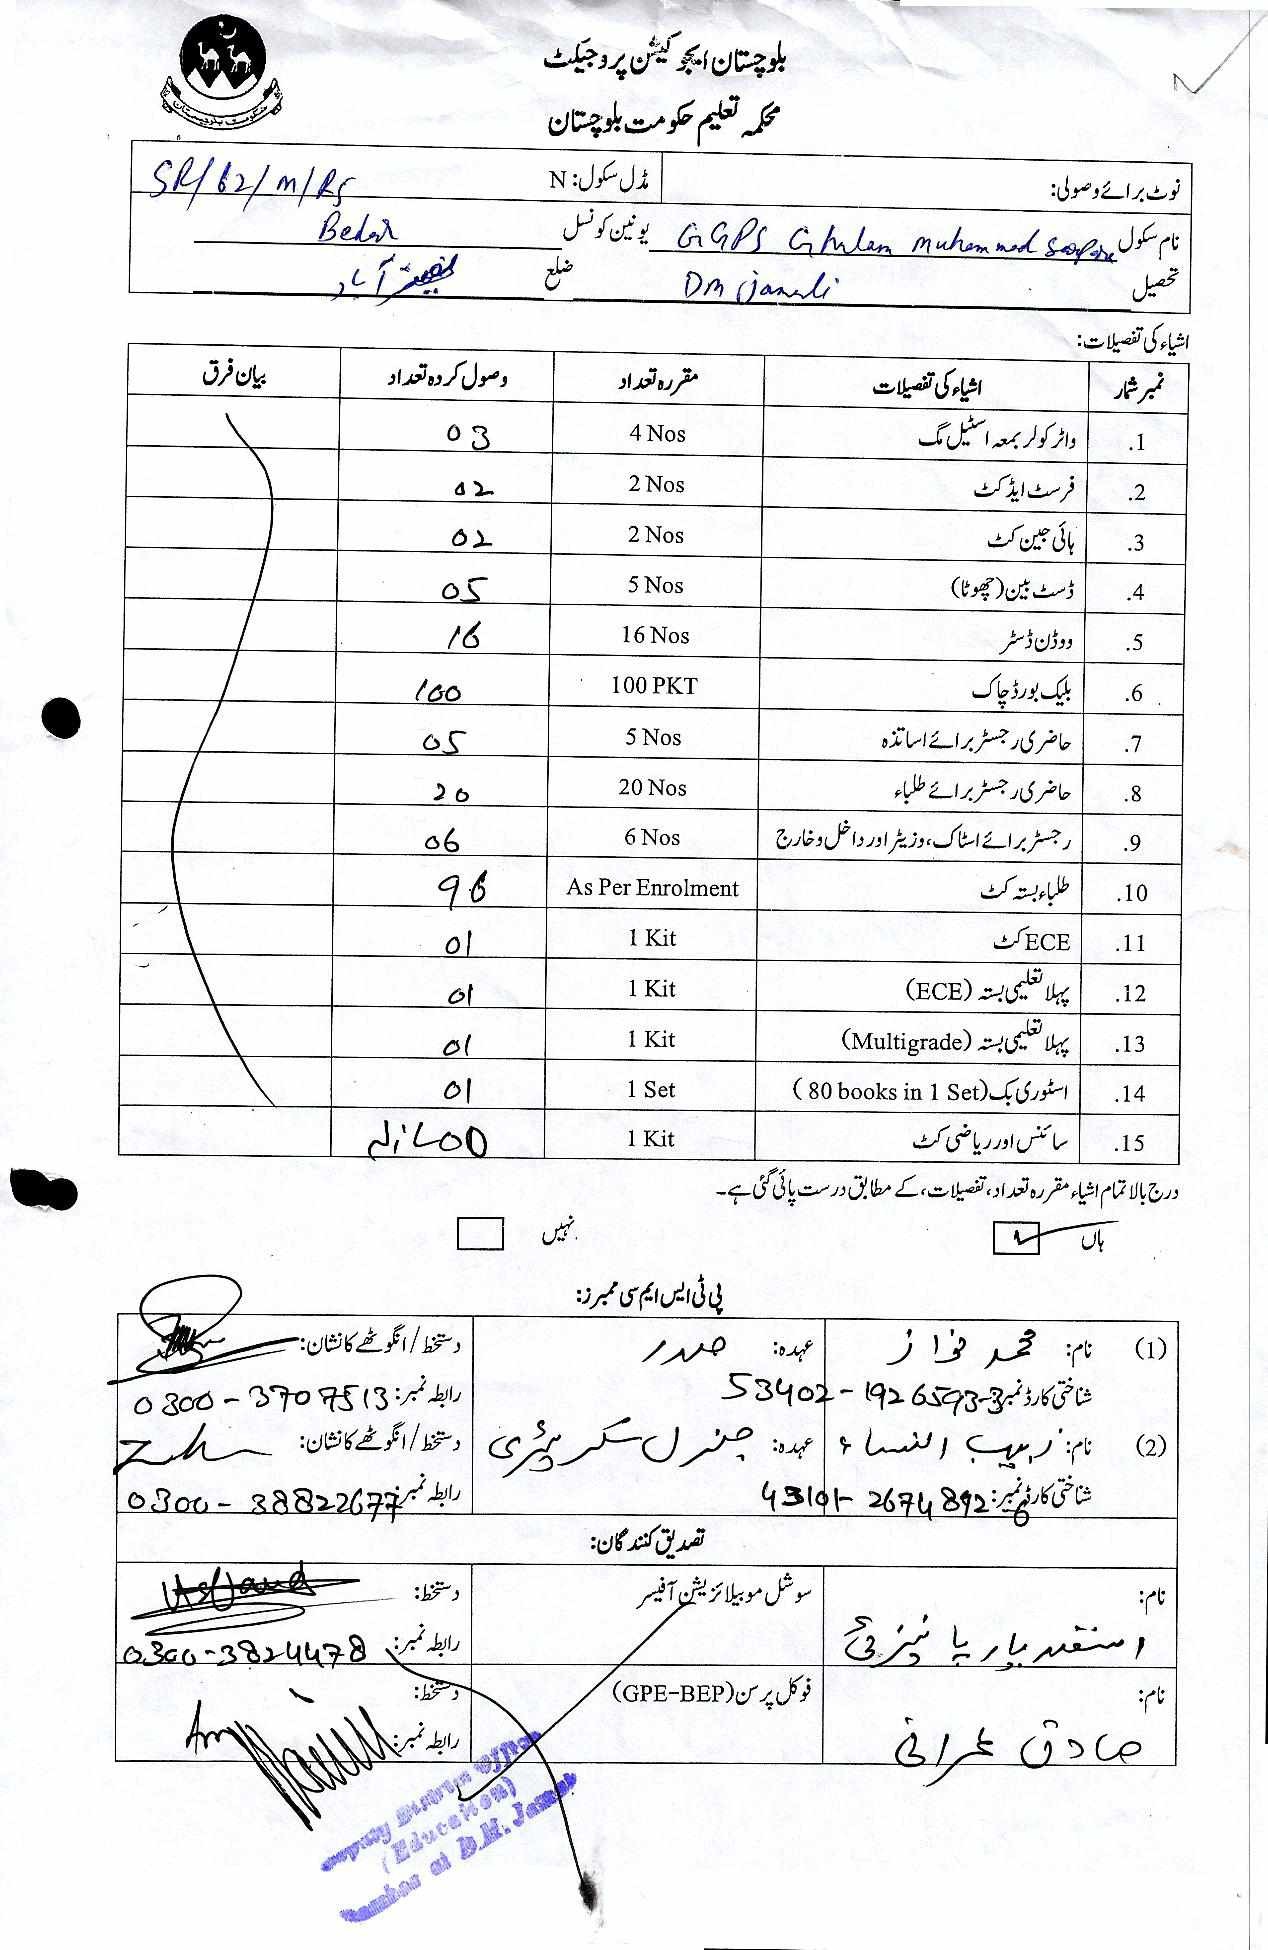 حکومت بلوچستان
بلوچستان ایجوکیشن پروجیکٹ
محکمہ تعلیم حکومت بلوچستان
نوٹ برائے وصولی: مڈل سکول: N SR/62/M/RS
نام سکول GGPS Ghulam Muhammad یونین کونسل Bedar
تحصیل DM Jamali ضلع نصیر آباد
اشیاء کی تفصیلات:
نمبر شمار اشیاء کی تفصیلات مقررہ تعداد وصول کردہ تعداد بیان فرق
1. واٹر کولر بمعہ اسٹیل مگ 4 Nos 03
2. فرسٹ ایڈ کٹ 2 Nos 02
3. ہائی جین کٹ 2 Nos 02
4. ڈسٹ بین (چھوٹا) 5 Nos 05
5. ووڈن ڈسٹر 16 Nos 16
6. بلیک بورڈ چاک 100 PKT 100
7. حاضری رجسٹر برائے اساتذہ 5 Nos 05
8. حاضری رجسٹر برائے طلباء 20 Nos 20
9. رجسٹر برائے اسٹاک، وزیٹر اور داخل و خارج 6 Nos 06
10. طلباء بستہ کٹ As Per Enrolment 96
11. ECE کٹ 1 Kit 01
12. پہلا تعلیمی بستہ (ECE) 1 Kit 01
13. پہلا تعلیمی بستہ (Multigrade) 1 Kit 01
14. اسٹوری بک (80 books in 1 Set) 1 Set 01
15. سائنس اور ریاضی کٹ 1 Kit
درج بالا تمام اشیاء مقررہ تعداد، تفصیلات، کے مطابق درست پائی گئی ہے۔
ہاں نہیں
پی ٹی ایس ایم سی ممبرز:
(1) نام: محمد نواز عہدہ: صدر دستخط/انگوٹھے کا نشان:
شناختی کارڈ نمبر: 53402-1926593-3 رابطہ نمبر: 0300-3707513
(2) نام: زیب النساء عہدہ: جنرل سکریٹری دستخط/انگوٹھے کا نشان:
شناختی کارڈ نمبر: 43101-2674892-6 رابطہ نمبر: 0300-38822677
تصدیق کنندگان:
نام: سوشل موبیلائزیشن آفیسر دستخط:
اسفندیار پانیزئی رابطہ نمبر: 0300-3824478
نام: فوکل پرسن (GPE-BEP) دستخط:
صادق عمرانی رابطہ نمبر:
Deputy District Officer
(Education)
at D.M. Jamali